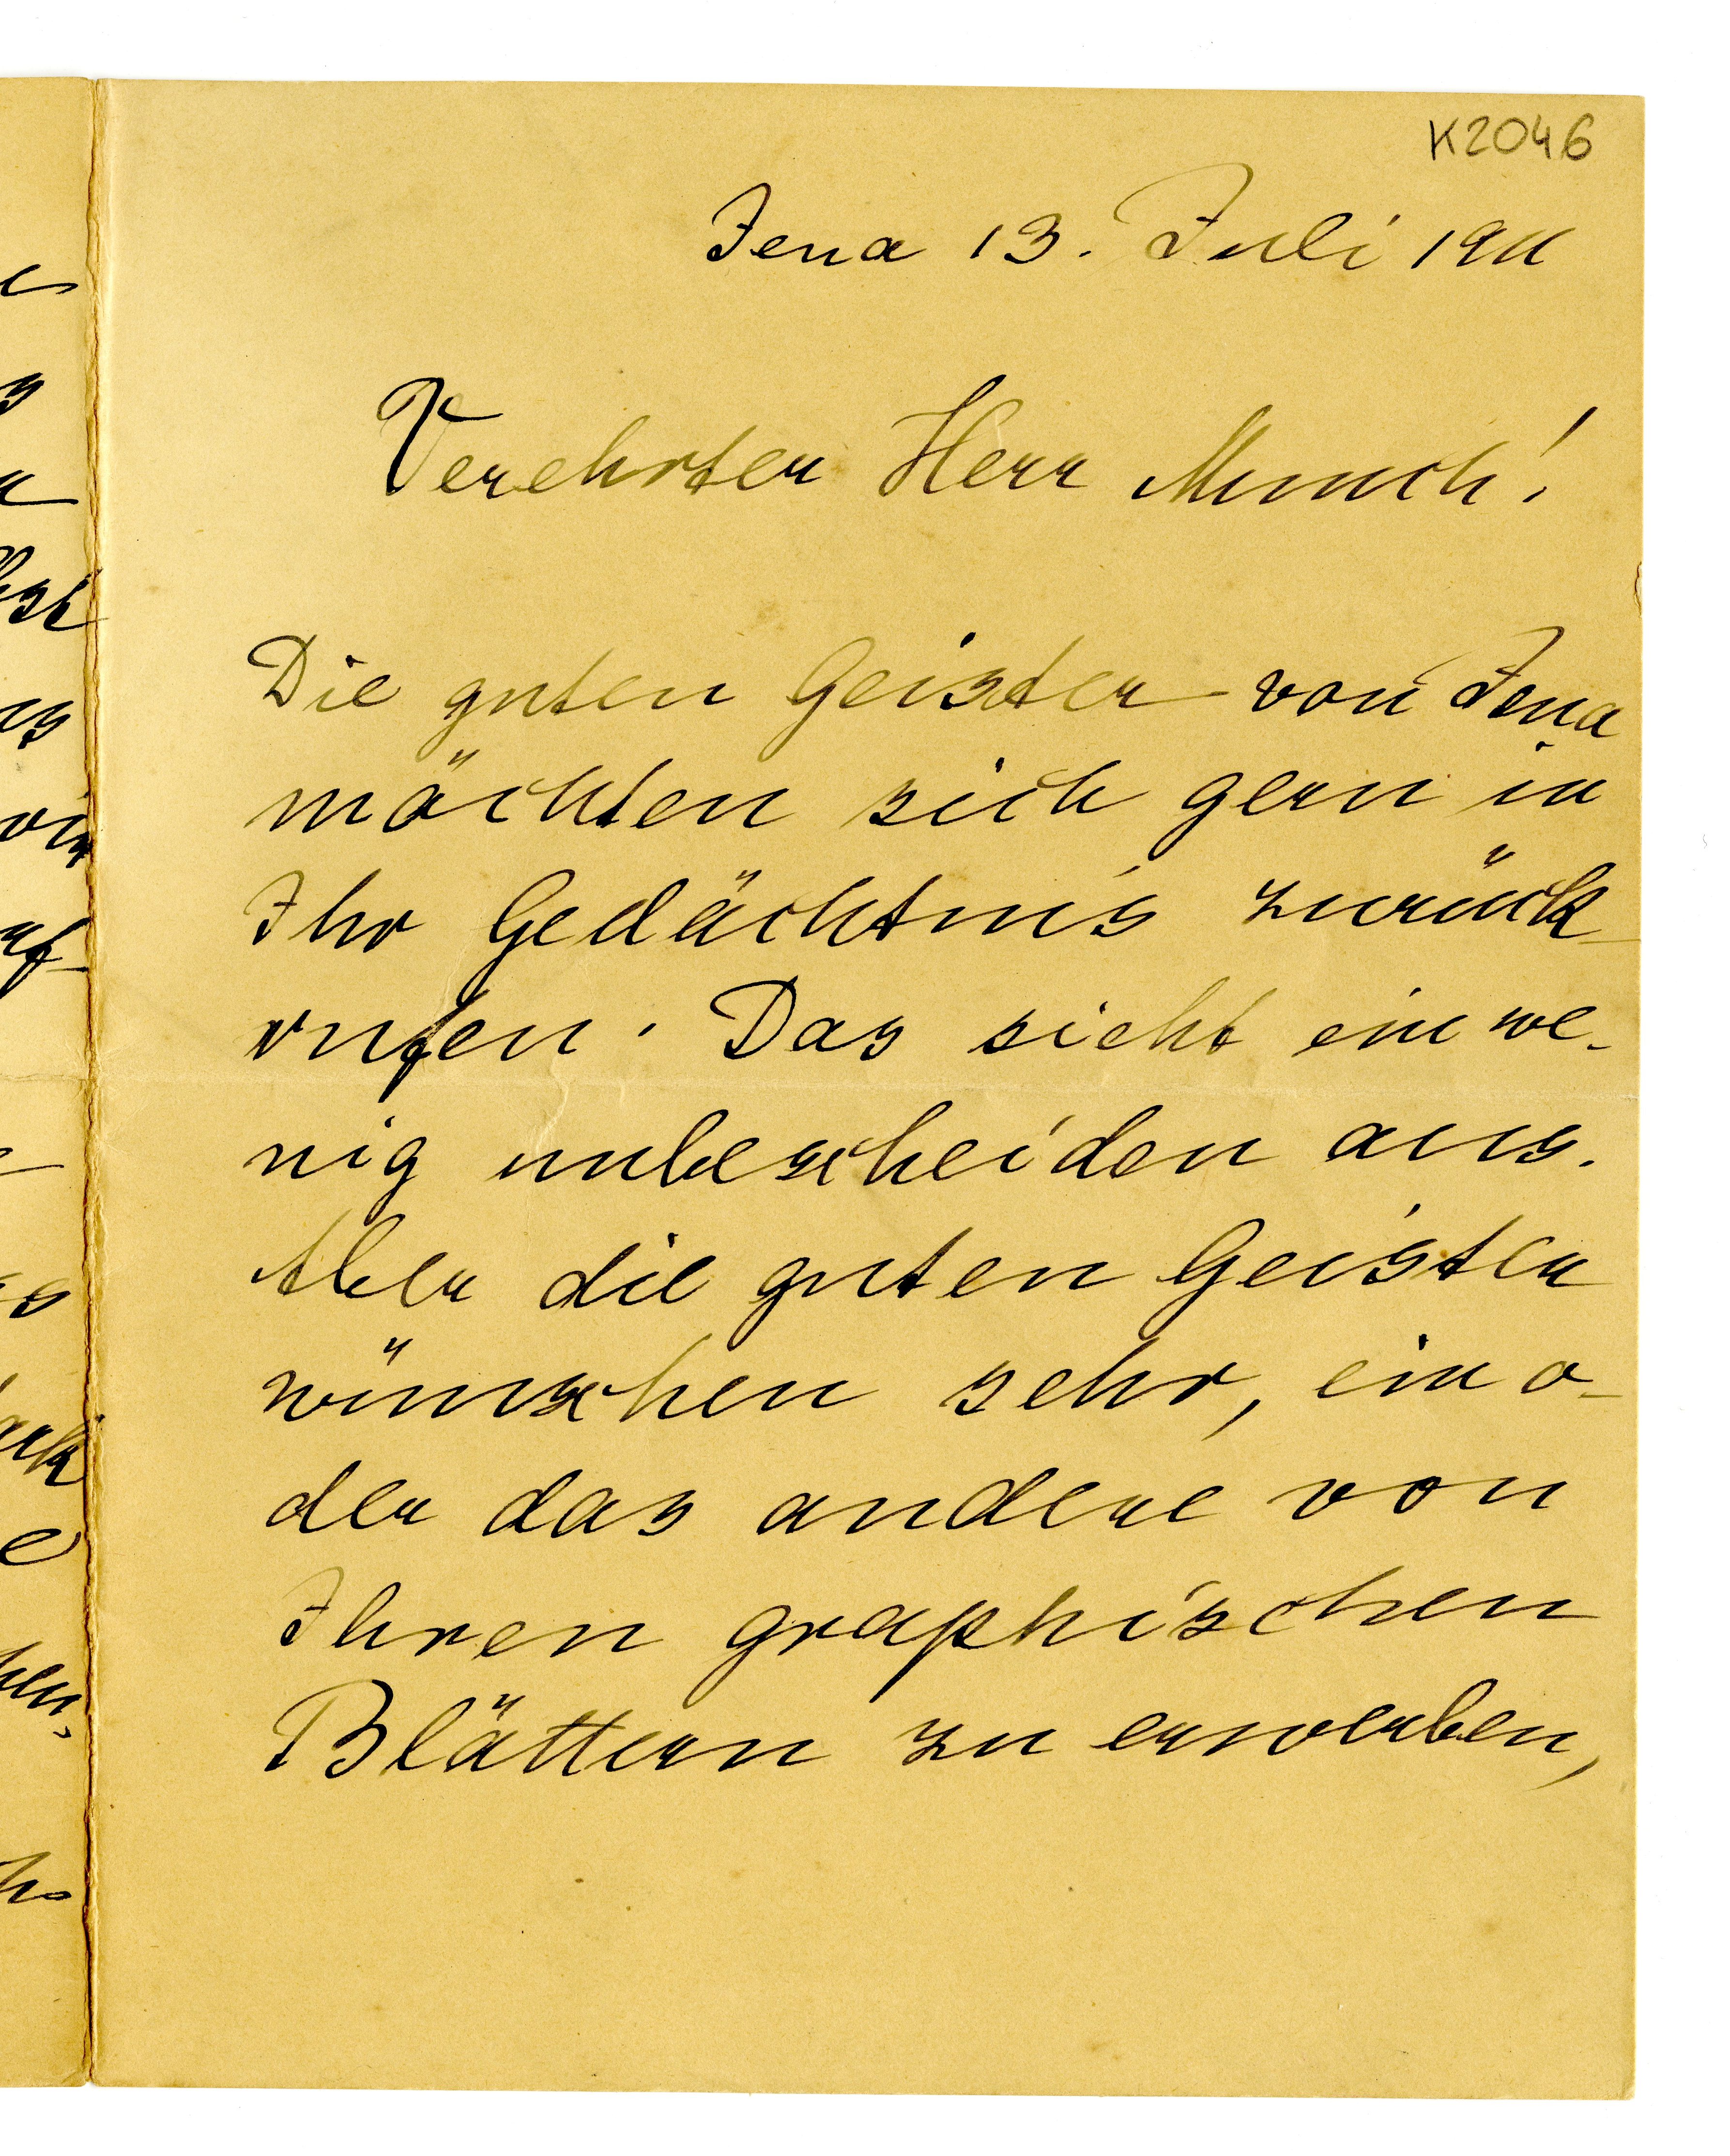 K2046
Jena 13. Juli 1911
Verehrter Herr Munch!
Die guten Geister von Jena
möchten sich gern in
Ihr Gedächtnis zurück-
rufen. Das sieht ein we-
nig unbescheiden aus.
Aber die guten Geister
wünschen sehr, ein o-
der das andere von
Ihren graphischen
Blättern zu erwerben,